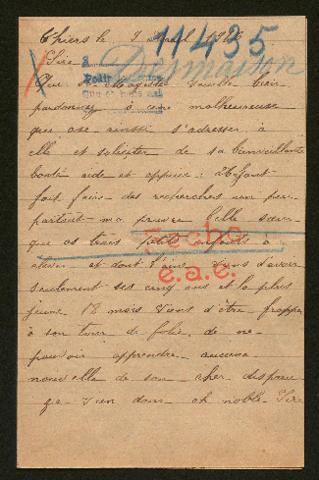 Thiers le 9 Avril 19
11435
Sire
Desmaison
Que Sa Majesté veuille bien
pardonnez à une malheureuse
que ose ainssi s'adresser à
elle et soliciter de sa bienveillante
bonté aide et appuie: Ayant
fait faire des recherches un peu
partout ma pauvre belle sœur
que as trois petits enfants à
Fiche
elever et dont l'ainé vient d'avoir
e.a.e.
seulement ses cinq ans et le plus
jeune 18 mois vient d'être frappée
à son tour de folie, de ne
pouvoir apprendre aucune
nouvelle de son cher disparu
ge vien donc oh noble Sire